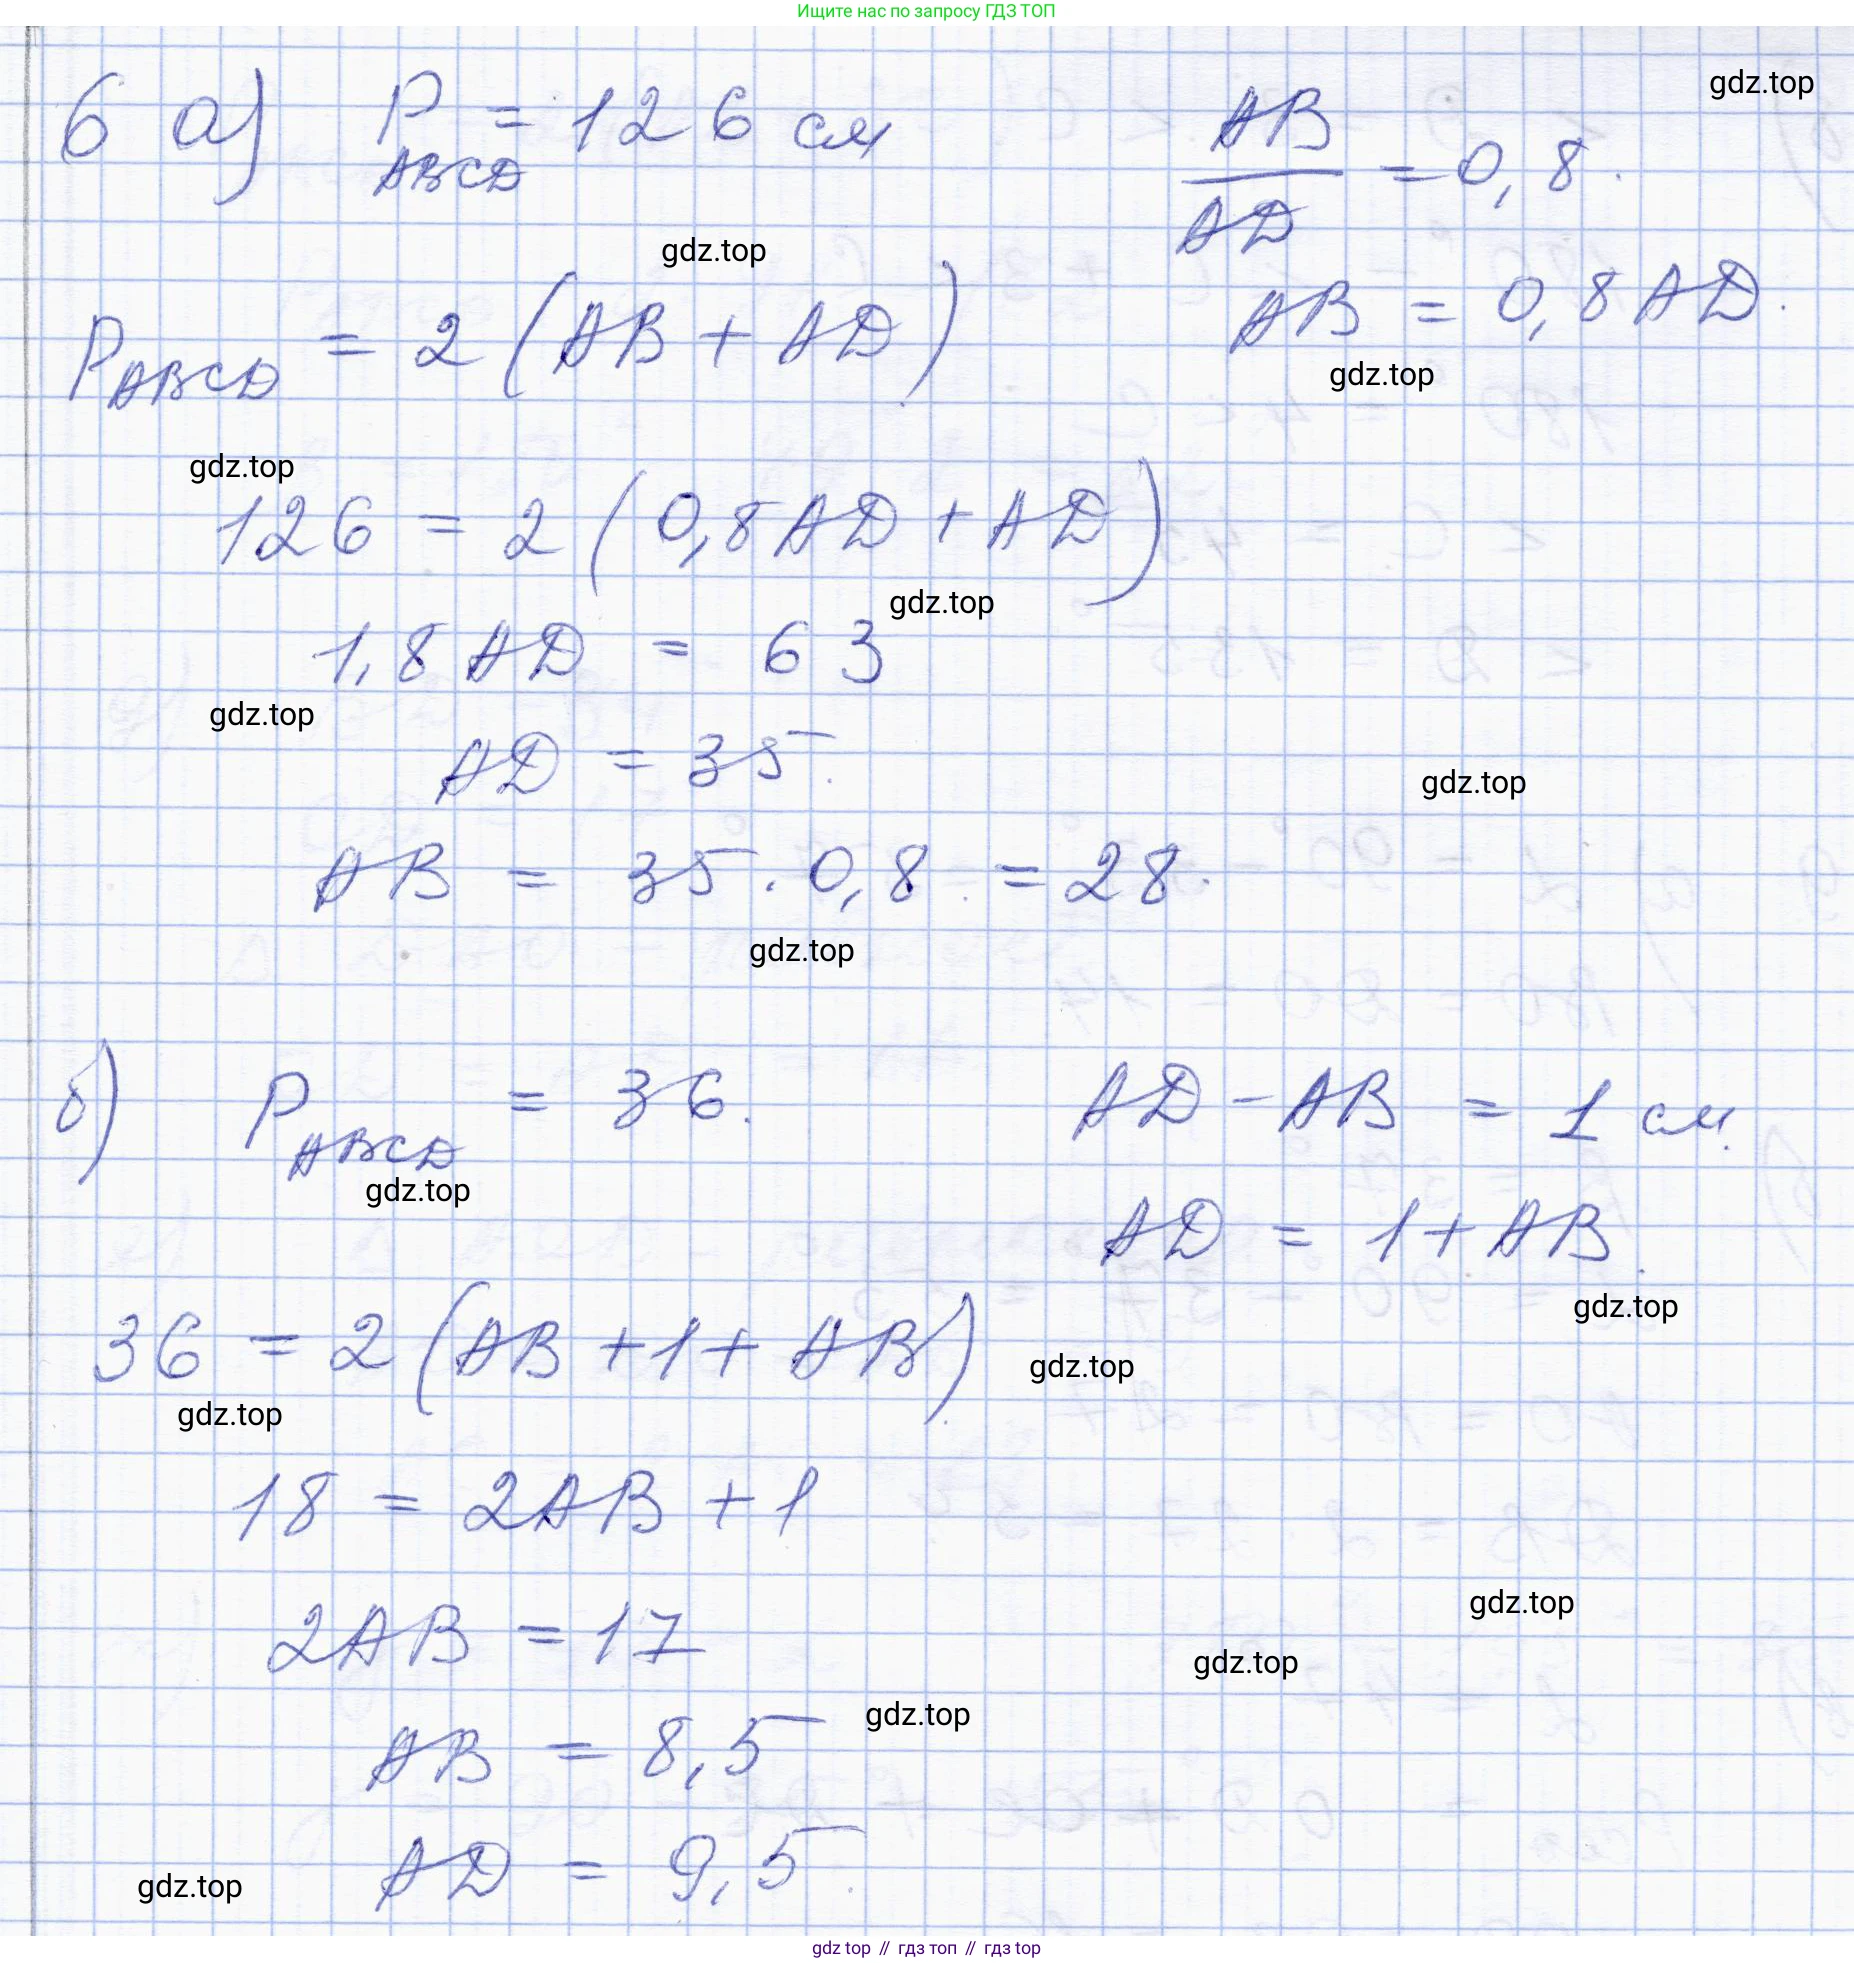 Ищите нас по запросу ГДЗ ТОП
gdz.top
6 а) P ABCD = 126 см
AB/AD = 0,8.
gdz.top
AB = 0,8 AD.
P ABCD = 2 (AB + AD)
gdz.top
gdz.top
126 = 2 (0,8 AD + AD)
gdz.top
1,8 AD = 63
gdz.top
AD = 35.
gdz.top
AB = 35 · 0,8 = 28.
gdz.top
б) P ABCD = 36.
AD - AB = 1 см.
gdz.top
AD = 1 + AB.
gdz.top
36 = 2 (AB + 1 + AB)
gdz.top
gdz.top
18 = 2AB + 1
gdz.top
2AB = 17
gdz.top
gdz.top
AB = 8,5
AD = 9,5.
gdz.top
gdz top // гдз топ // гдз top